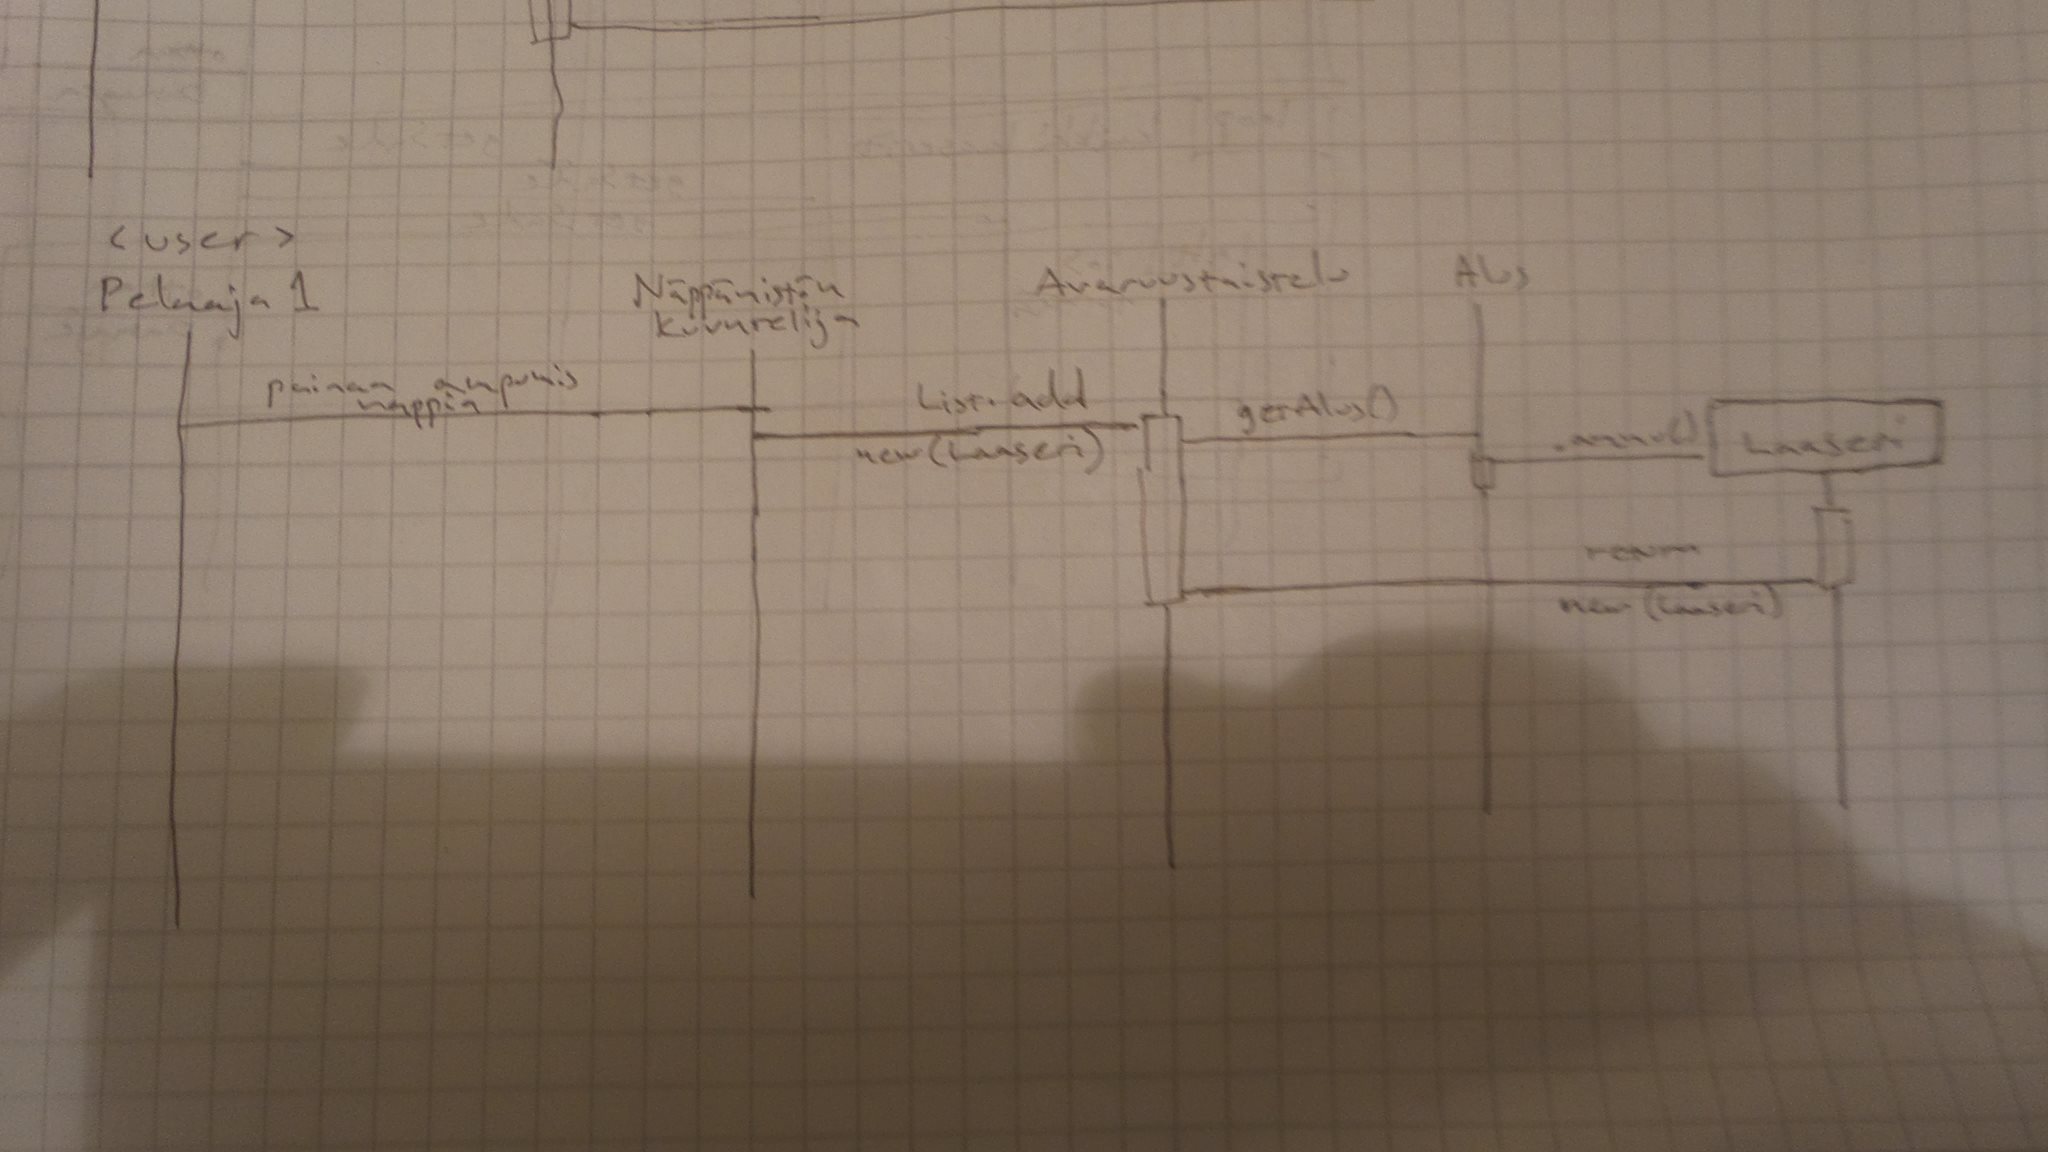 <user>
Pelaaja 1
Näppäimistön
kuuntelija
Avaruustaistelu
Alus
painaa ampumis
nappia
List.add
new(Laaseri)
getAlus()
.ammu()
Laaseri
return
new(Laaseri)